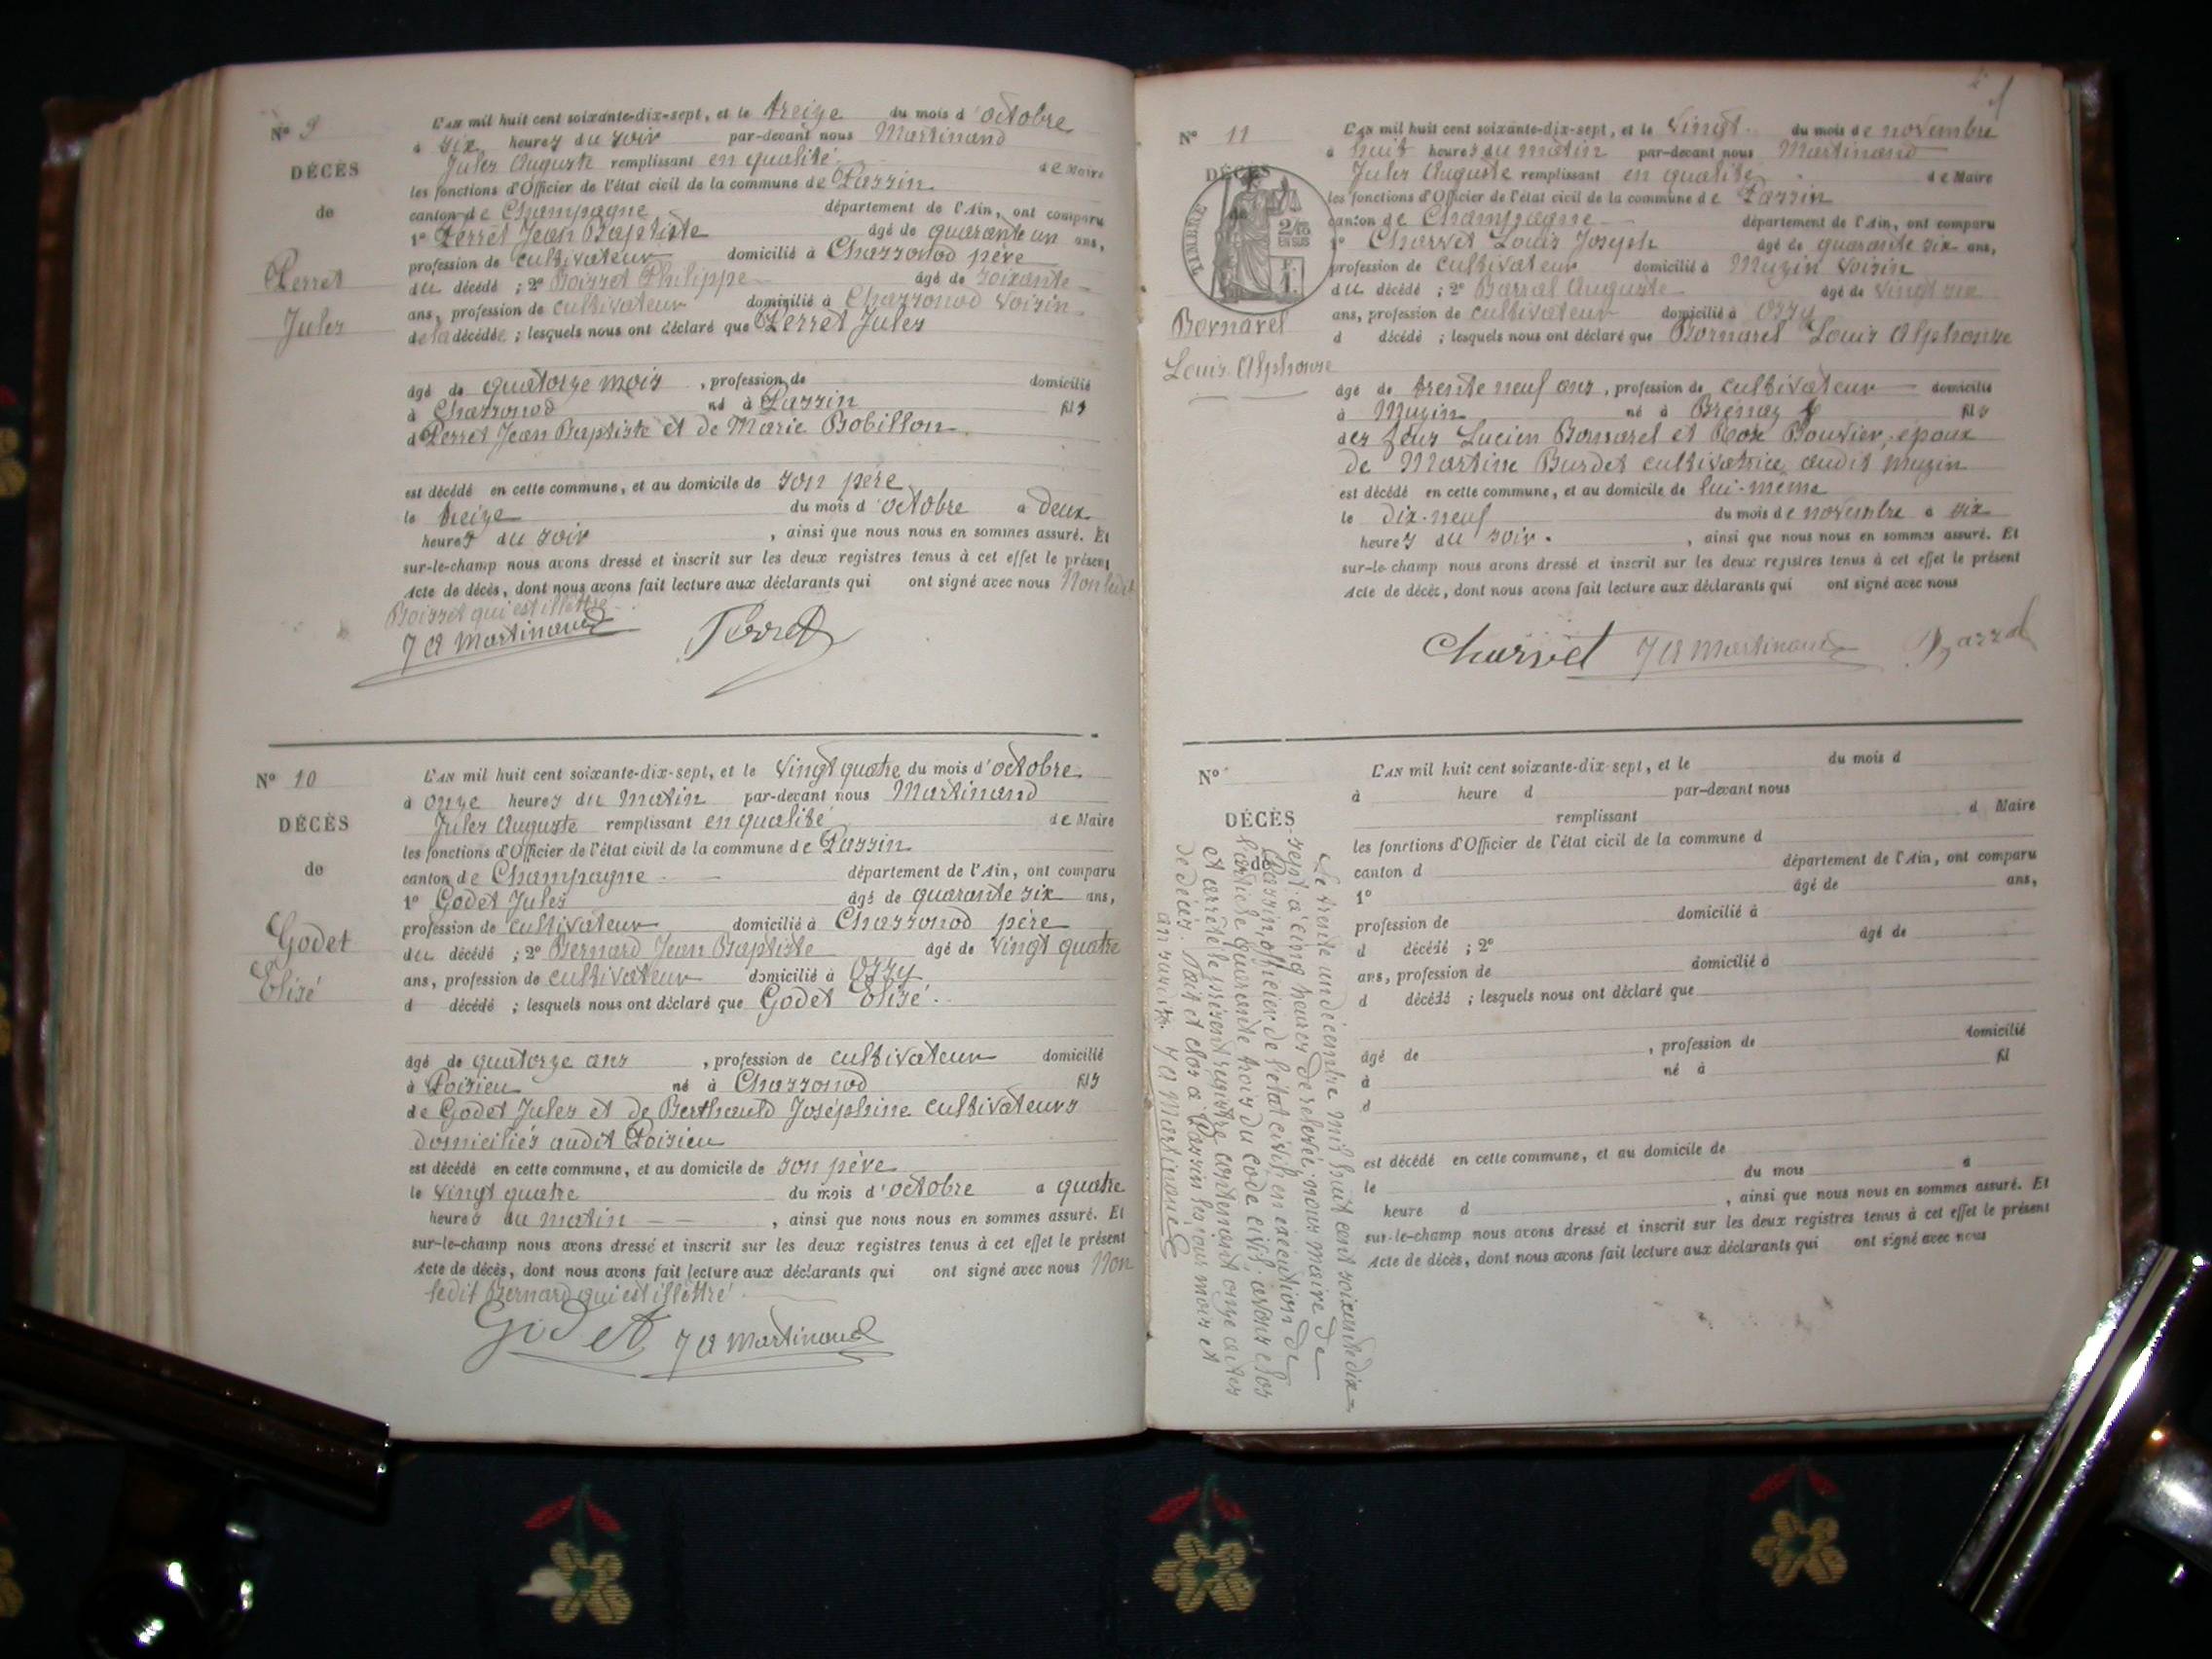 N° 9
DÉCÈS
de
Perret
Jules
L'AN mil huit cent soixante-dix-sept, et le treize du mois d'octobre
à six heures du soir par-devant nous Martinand
Jules Auguste remplissant en qualité de Maire
les fonctions d'Officier de l'état civil de la commune de Passin
canton de Champagne département de l'Ain, ont comparu
1° Perret Jean Baptiste âgé de quarante un ans,
profession de cultivateur domicilié à Chassonod père
du décédé ; 2° Boisset Philippe âgé de soixante
ans, profession de cultivateur domicilié à Chassonod voisin
de la décédée ; lesquels nous ont déclaré que Perret Jules
âgé de quatorze mois , profession de domicilié
à Chassonod né à Passin fils
d Perret Jean Baptiste et de Marie Bobillon
est décédé en cette commune, et au domicile de son père
le treize du mois d'octobre à deux
heures du soir , ainsi que nous nous en sommes assuré. Et
sur-le-champ nous avons dressé et inscrit sur les deux registres tenus à cet effet le présent
Acte de décès, dont nous avons fait lecture aux déclarants qui ont signé avec nous Non ledit
Boisset qui est illettré
J A Martinand Perret
N° 10
DÉCÈS
de
Godet
Elisé
L'AN mil huit cent soixante-dix-sept, et le vingt quatre du mois d'octobre
à onze heures du matin par-devant nous Martinand
Jules Auguste remplissant en qualité de Maire
les fonctions d'Officier de l'état civil de la commune de Passin
canton de Champagne département de l'Ain, ont comparu
1° Godet Jules âgé de quarante six ans,
profession de cultivateur domicilié à Chassonod père
du décédé ; 2° Bernard Jean Baptiste âgé de vingt quatre
ans, profession de cultivateur domicilié à Ossy
d décédé ; lesquels nous ont déclaré que Godet Elisé
âgé de quatorze ans , profession de cultivateur domicilié
à Poisieu né à Chassonod fils
de Godet Jules et de Berthauld Joséphine cultivateurs
domiciliés audit Poisieu
est décédé en cette commune, et au domicile de son père
le vingt quatre du mois d'octobre à quatre
heures du matin , ainsi que nous nous en sommes assuré. Et
sur-le-champ nous avons dressé et inscrit sur les deux registres tenus à cet effet le présent
Acte de décès, dont nous avons fait lecture aux déclarants qui ont signé avec nous Non
ledit Bernard qui est illettré
Godet J A Martinand
N° 11
DÉCÈS
TIMBRE
2/10
EN SUS
Bornarel
Louis Alphonse
L'AN mil huit cent soixante-dix-sept, et le vingt du mois de novembre
à huit heures du matin par-devant nous Martinand
Jules Auguste remplissant en qualité de Maire
les fonctions d'Officier de l'état civil de la commune de Passin
canton de Champagne département de l'Ain, ont comparu
1° Charvet Louis Joseph âgé de quarante six ans,
profession de cultivateur domicilié à Muzin voisin
du décédé ; 2° Barral Auguste âgé de vingt six
ans, profession de cultivateur domicilié à Ossy
d décédé ; lesquels nous ont déclaré que Bornarel Louis Alphonse
âgé de trente neuf ans , profession de cultivateur domicilié
à Muzin né à Brénaz fils
des feus Lucien Bornarel et Rose Bouvier, époux
de Martine Burdet cultivatrice audit Muzin
est décédé en cette commune, et au domicile de lui-même
le dix-neuf du mois de novembre à six
heures du soir , ainsi que nous nous en sommes assuré. Et
sur-le-champ nous avons dressé et inscrit sur les deux registres tenus à cet effet le présent
Acte de décès, dont nous avons fait lecture aux déclarants qui ont signé avec nous
Charvet J A Martinand Barral
N°
DÉCÈS
de
Le trente un décembre mil huit cent soixante dix
sept à cinq heures de relevée nous maire de
Passin, officier de l'état civil, en exécution de
l'article quarante trois du code civil, avons clos
et arrêté le présent registre contenant onze actes
de décès. Fait et clos à Passin les jour mois et
an susdits. J A Martinand
L'AN mil huit cent soixante-dix-sept, et le du mois d
à heure d par-devant nous
remplissant d Maire
les fonctions d'Officier de l'état civil de la commune d
canton d département de l'Ain, ont comparu
1° âgé de ans,
profession de domicilié à
d décédé ; 2° âgé de
ans, profession de domicilié à
d décédé ; lesquels nous ont déclaré que
âgé de , profession de domicilié
à né à fil
d
est décédé en cette commune, et au domicile de
le du mois à
heure d , ainsi que nous nous en sommes assuré. Et
sur-le-champ nous avons dressé et inscrit sur les deux registres tenus à cet effet le présent
Acte de décès, dont nous avons fait lecture aux déclarants qui ont signé avec nous